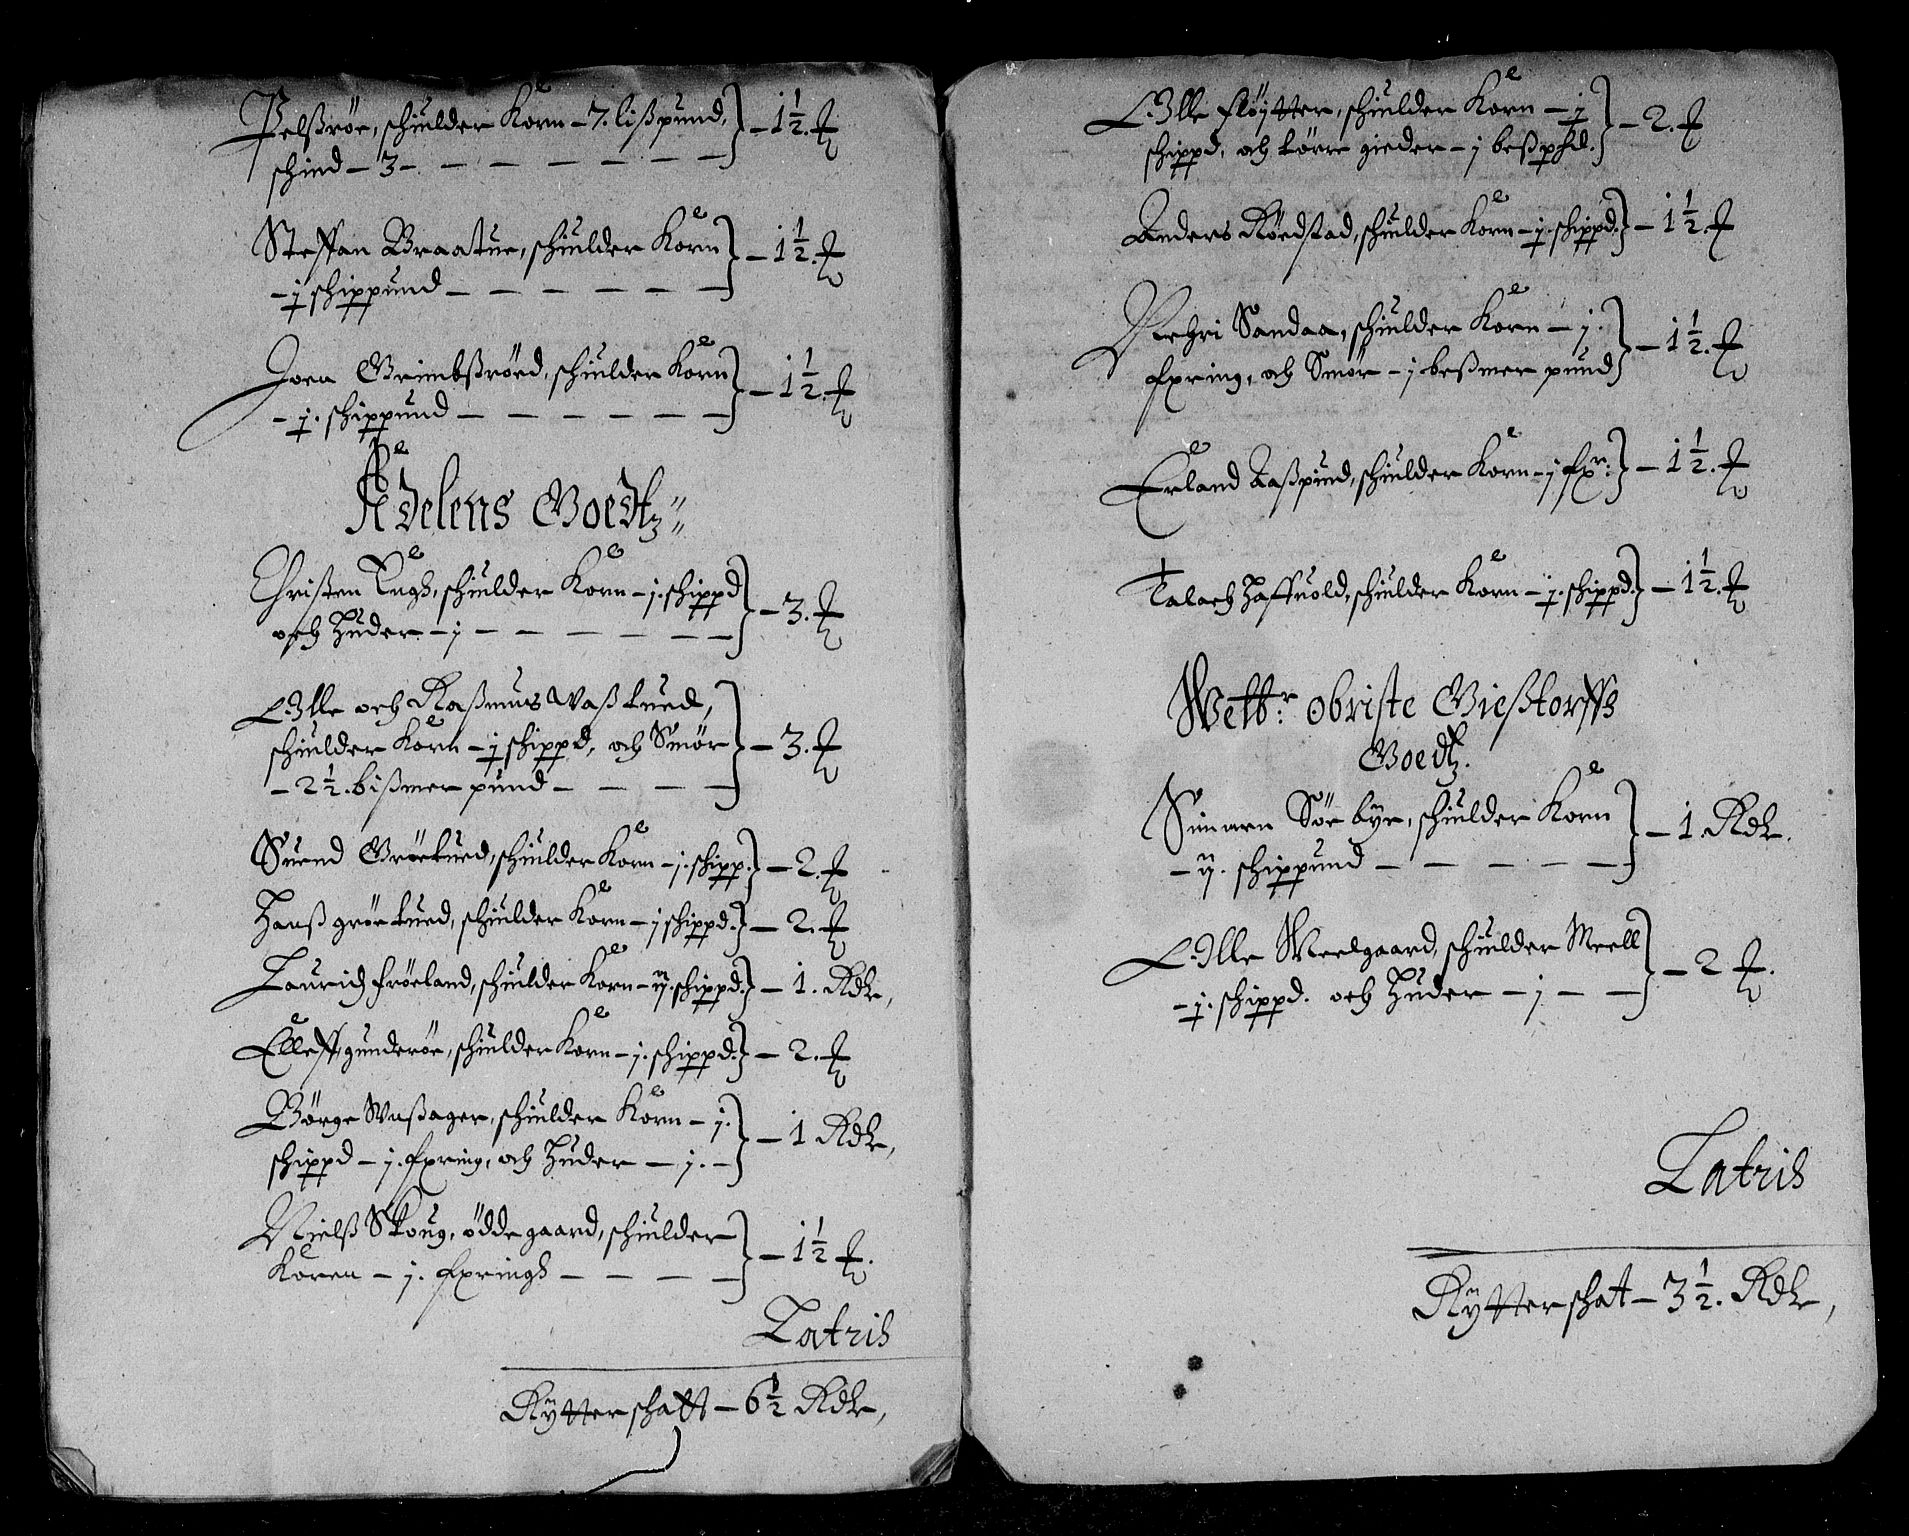 Pelßröe, schiulder Korn – 7. lißpund, – 1½. 
schind – 3 –
Steffan Braatue, schiulder Korn – 1½.
– j schippund –
Joen Grimbßröed, schiulder Korn – 1½.
– j. schippund –
Adelens Goedtz
Christen Rugh, schiulder Korn – j. schippd – 3.
och Huder – j –
Olle och Raßmus Waßtued,
schiulder Korn – j schippd, och Smör – 3.
– 2½. bißmer pund –
Suend Gröetued, schiulder Korn – j. schipp. – 2.
Hanß gröetued, schiulder Korn – j schippd. – 2.
Lauridz fröeland, schiulder Korn – ij. schippd. – 1. Rdlr,
Elleff gunderöe, schiulder Korn – j. schippd. – 2.
Börge Waßager, schiulder Korn – j.
schippd – j. fxring, och Huder – j. – 1 Rdlr,
Nielß Skoug, ödde gaard, schiulder
Koren – j. fxringh – 1½
Latris
Rytterschatt – 6½ Rdlr,
Olle flöytter, schiulder Korn – j
schippd, och törre gieder – j beßphd. – 2.
Anders Röedstad, schiulder Korn – j. schippd. – 1½.
Sandaa, schiulder Korn – j.
fxring, och Smör – j beßmer pund – 1½.
Erland Aaßpund, schiulder Korn – j fxr: – 1½.
Talach Haffuold, schiulder Korn – j. schippd. – 1½.
Welb:r Obriste Gießtorffs
Goedtz.
Simmen Söe bye, schiulder Korn
– ij. schippund – 1. Rdlr.
Olle Meelgaard, schiulder Meell
– j. schippd. och Huder – j – 2
Latris
Rytterschat – 3½. Rdlr,